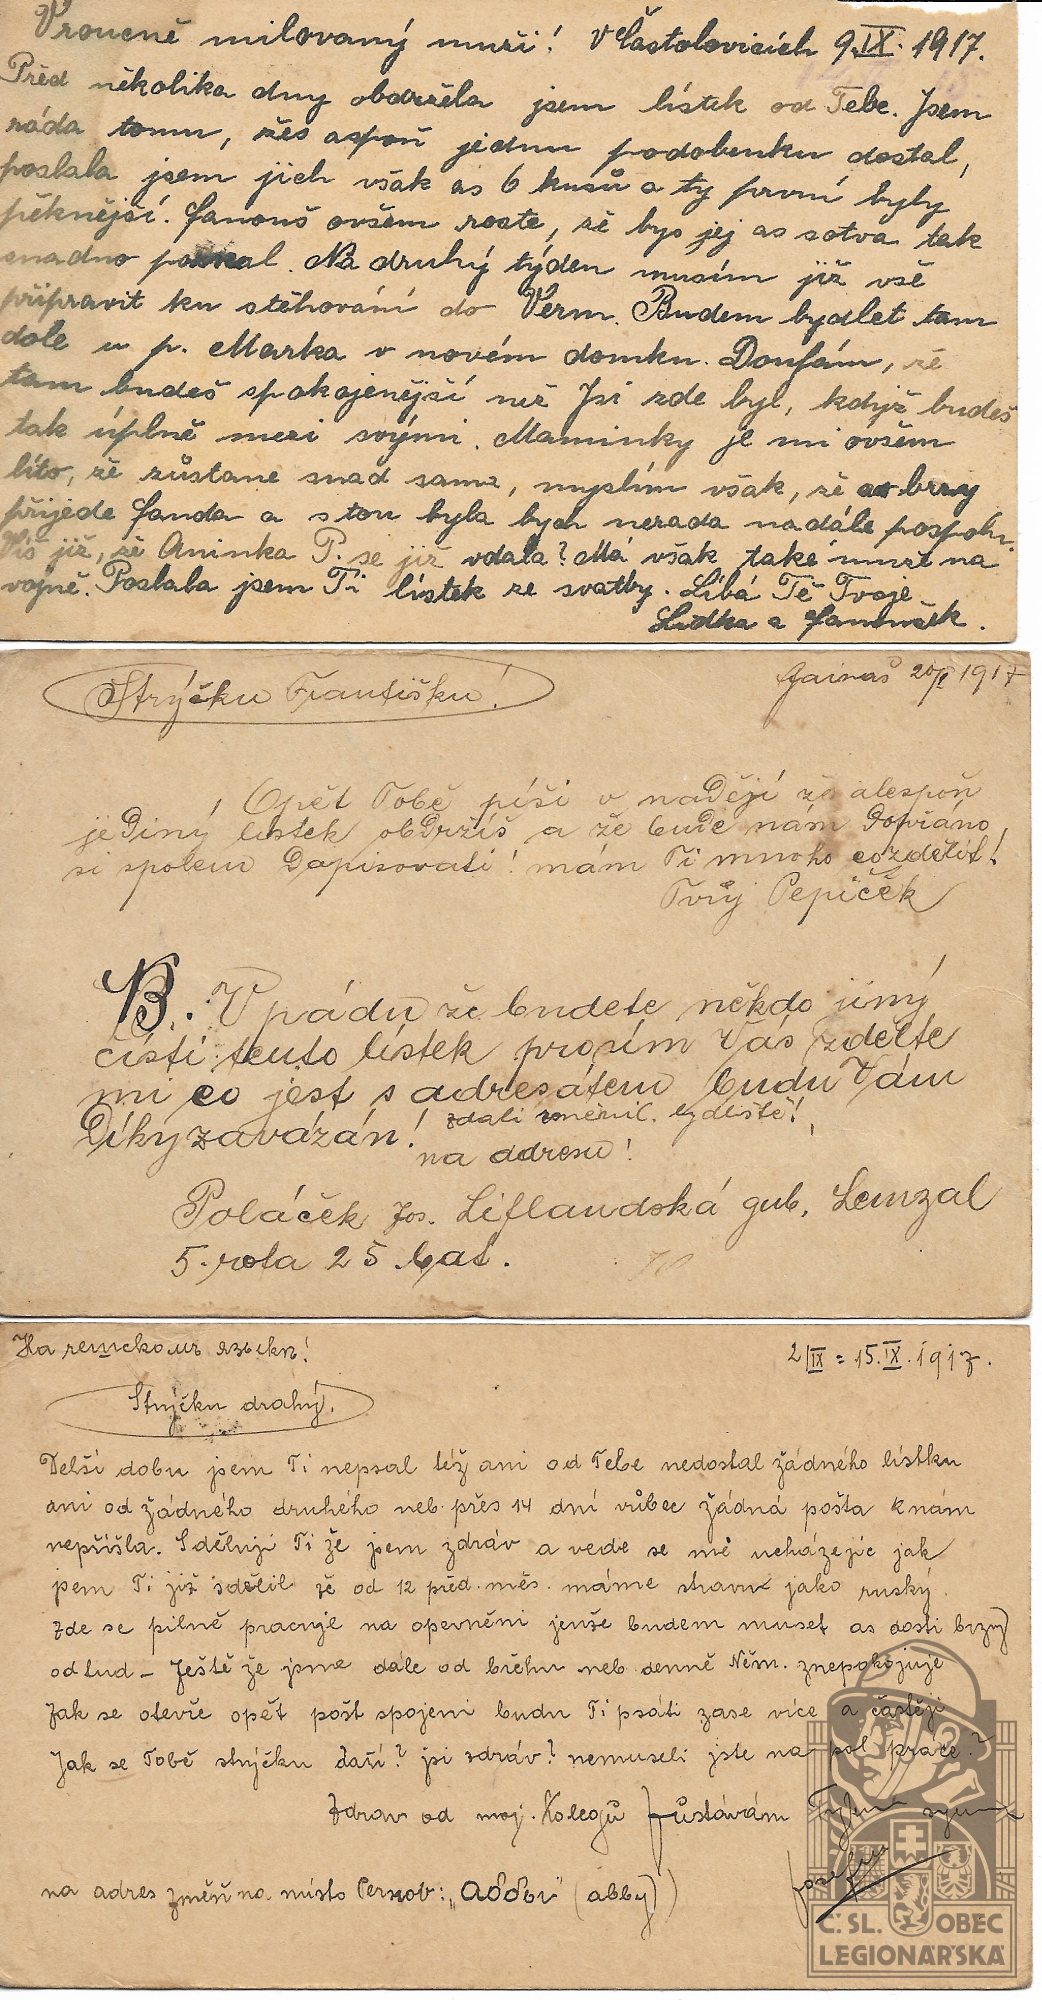 Vroucně milovaný muži! V Častolovicích 9.IX. 1917.
Před několika dny obdržela jsem lístek od Tebe. Jsem
ráda tomu, žes aspoň jednu podobenku dostal,
poslala jsem jich však as 6 kusů a ty první byly
pěknější. Fanouš ovšem roste, že bys jej as sotva tak
snadno poznal. Na druhý týden musím již vše
připravit ku stěhování do Verm. Budem bydlet tam
dole u p. Marka v novém domku. Doufám, že
tam budeš spokojenější než Jsi zde byl, když budeš
tak úplně mezi svými. Maminky je mi ovšem
líto, že zůstane snad sama, myslím však, že brzy
přijede Fanda a s tou byla bych nerada nadále pospolu.
Víš již, že Aninka P. se již vdala? Má však také muže na
vojně. Poslala jsem Ti lístek ze svatby. Líbá Tě Tvoje
Lidka a Fanouček.
Strýčku Františku!
Gainaš 20/I 1917
Opět Tobě píši v naději že alespoň
jediný lístek obdržíš a že bude nám dopřáno,
si spolem dopisovati! mám Ti mnoho co zdělit!
Tvůj Pepíček
B.: V pádu že budete někdo jiný
čísti tento lístek prosím Vás zdělte
mi co jest s adresátem budu Vám
Díky zavázán! zdali změnil bydliště!,
na adresu!
Poláček Jos. Liflandská gub. Lemzal
5. rota 25 bat.
На чешскомъ языкѣ!
2/IX = 15.IX.1917.
Strýčku drahý.
Delší dobu jsem Ti nepsal též ani od Tebe nedostal žádného lístku
ani od žádného druhého neb přes 14 dní vůbec žádná pošta k nám
nepřišla. Sděluji Ti že jsem zdráv a vede se mě ucházejíc jak
jsem Ti již sdělil že od 12 před. měs. máme stravu jako ruský.
Zde se pilně pracuje na opevnění jenže budem muset as dosti brzy
odtud – Ještě že jsme dále od břehu neb denně Něm. znepokojuje
Jak se otevře opět pošt spojení budu Ti psáti zase více a častěji
Jak se Tobě strýčku daří? jsi zdráv? nemuseli jste na pol. práce?
Zdrav od moj. Kolegů zůstávám Tvým synem
Josefem
na adres změň na místo Pernov: „Аббы" (abby)
Č. SL. OBEC
LEGIONÁŘSKÁ